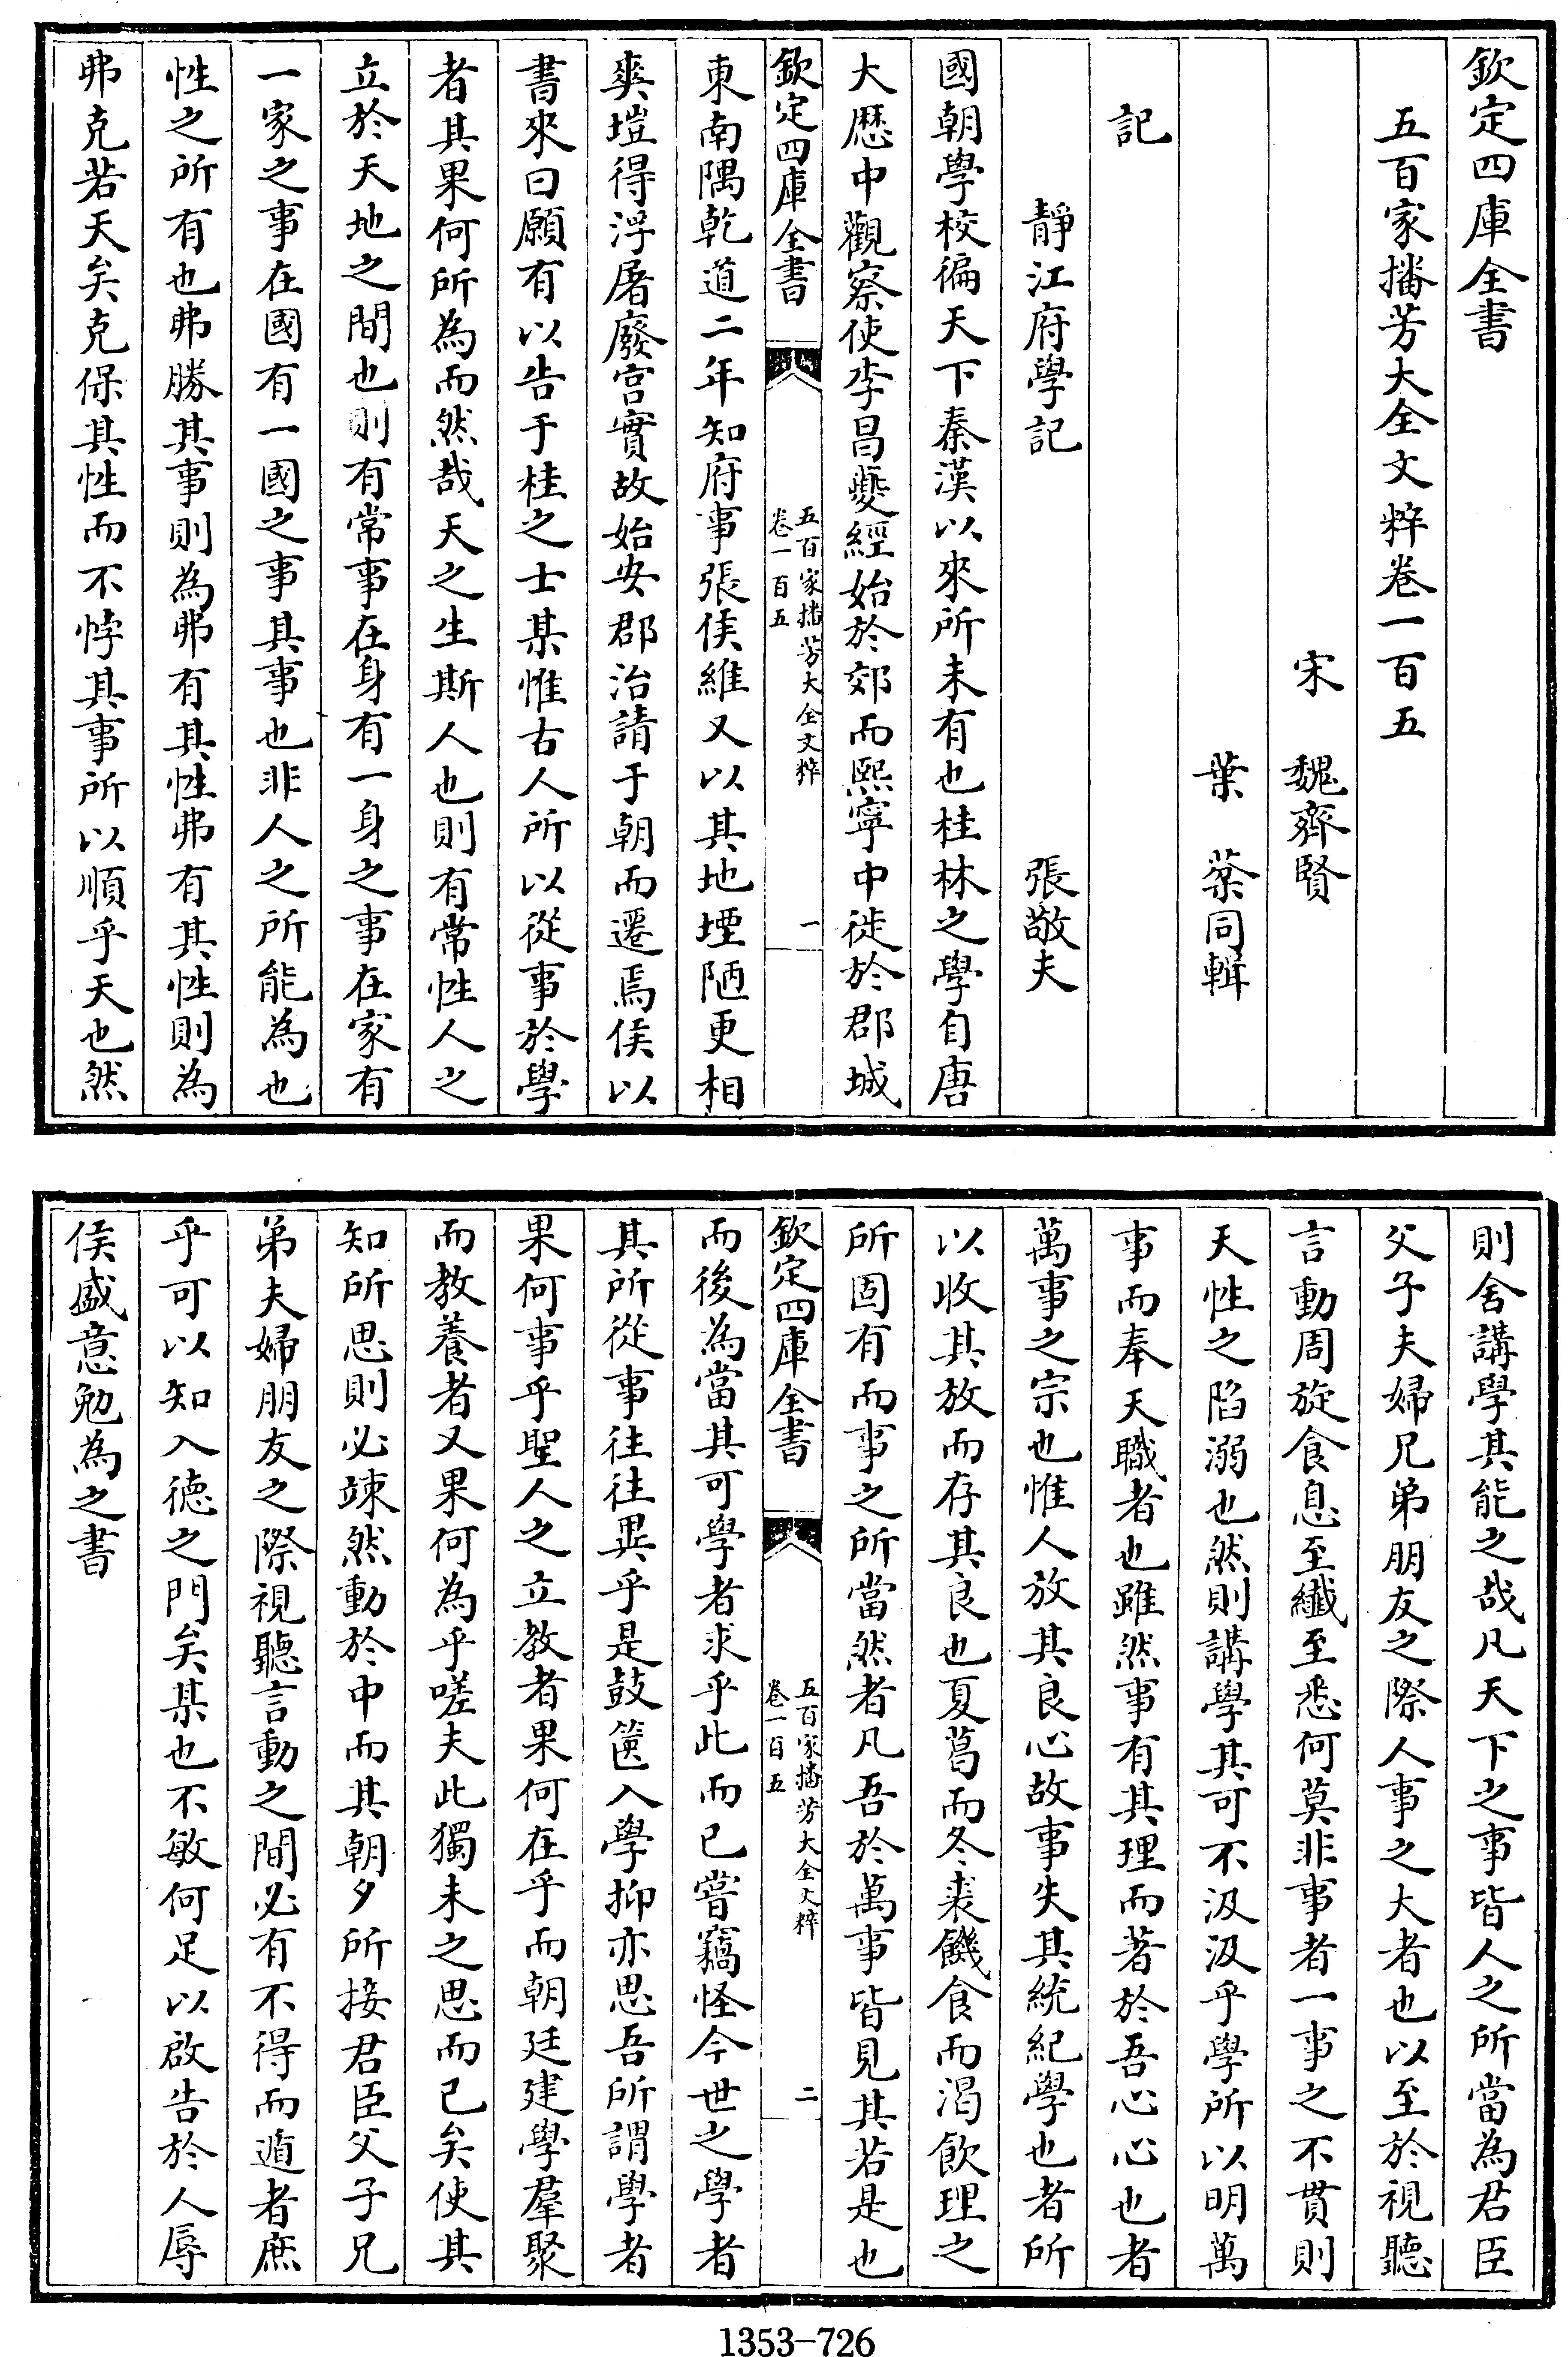 欽定四庫全書
五百家播芳大全文粹卷一百五
宋 魏齊賢
葉 棻同輯
記
靜江府學記 張敬夫
國朝學校徧天下秦漢以來所未有也桂林之學自唐
大厯中觀察使李昌夔經始於郊而熙寧中徙於郡城
欽定四庫全書
五百家播芳大全文粹
卷一百五
一
東南隅乾道二年知府事張侯維又以其地堙陋更相
爽塏得浮屠廢宮實故始安郡治請于朝而遷焉侯以
書來曰願有以告于桂之士某惟古人所以從事於學
者其果何所為而然哉天之生斯人也則有常性人之
立於天地之間也則有常事在身有一身之事在家有
一家之事在國有一國之事其事也非人之所能為也
性之所有也弗勝其事則為弗有其性弗有其性則為
弗克若天矣克保其性而不悖其事所以順乎天也然
則舍講學其能之哉凡天下之事皆人之所當為君臣
父子夫婦兄弟朋友之際人事之大者也以至於視聽
言動周旋食息至纖至悉何莫非事者一事之不貫則
天性之陷溺也然則講學其可不汲汲乎學所以明萬
事而奉天職者也雖然事有其理而著於吾心心也者
萬事之宗也惟人放其良心故事失其統紀學也者所
以收其放而存其良也夏葛而冬裘饑食而渴飲理之
所固有而事之所當然者凡吾於萬事皆見其若是也
欽定四庫全書
五百家播芳大全文粹
卷一百五
二
而後為當其可學者求乎此而已嘗竊怪今世之學者
其所從事往往異乎是鼓篋入學抑亦思吾所謂學者
果何事乎聖人之立教者果何在乎而朝廷建學羣聚
而教養者又果何為乎嗟夫此獨未之思而已矣使其
知所思則必竦然動於中而其朝夕所接君臣父子兄
弟夫婦朋友之際視聽言動之間必有不得而遁者庶
乎可以知入德之門矣某也不敏何足以啟告於人辱
侯盛意勉為之書
1353-726